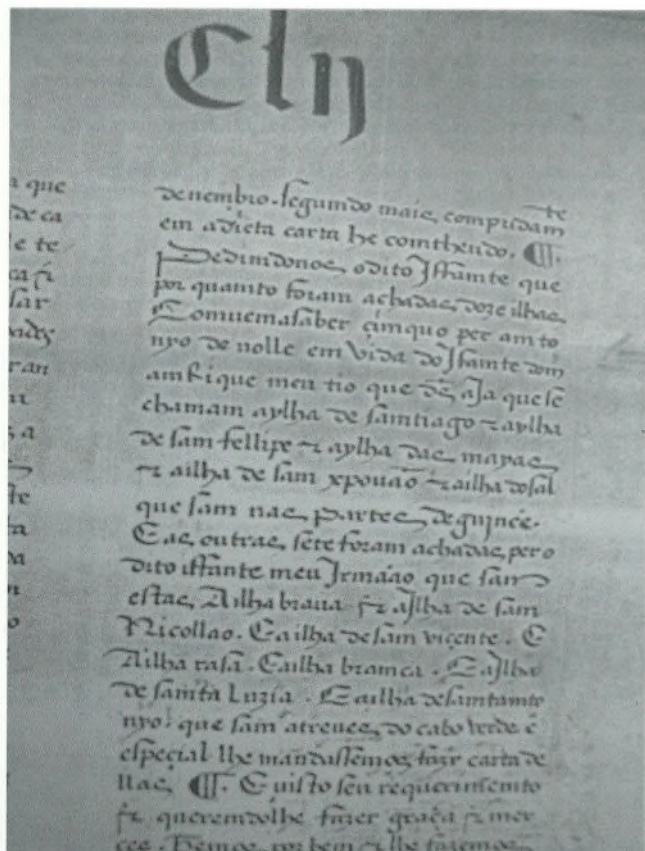 Clij
a que
de ca
le te
sar
ran
a
te
ta
o
denembro. segumdo mais compridam te
em a dicta carta he comtheudo. ¶.
Pedimdonos o dito Jffamte que
por quamto foram achadas doze ilhas
Comuemasaber çimquo per amto
nyo de nolle em Vida do Jfamte dom
amRique meu tio que ds aja que se
chamam aylha de samtiago & aylha
de sam fellipe & aylha das mayas
& ailha de sam xpouão & ailha do sal
que sam nas partes de guinee.
E as outras sete foram achadas per o
dito iffante meu Jrmaão que sam
estas, Ailha braua & aJlha de sam
Nicollao. E a ilha de sam viçente. E
Ailha rasa. E ailha bramca. E aJlha
de samta Luzia. E ailha de samtamto
nyo. que sam atreues do cabo verde e
especial lhe mandassemos fazer carta de
llas, ¶. E uisto seu requerimento
& queremdolhe fazer graça & mer
cee. Teemos por bem & lhe fazemos